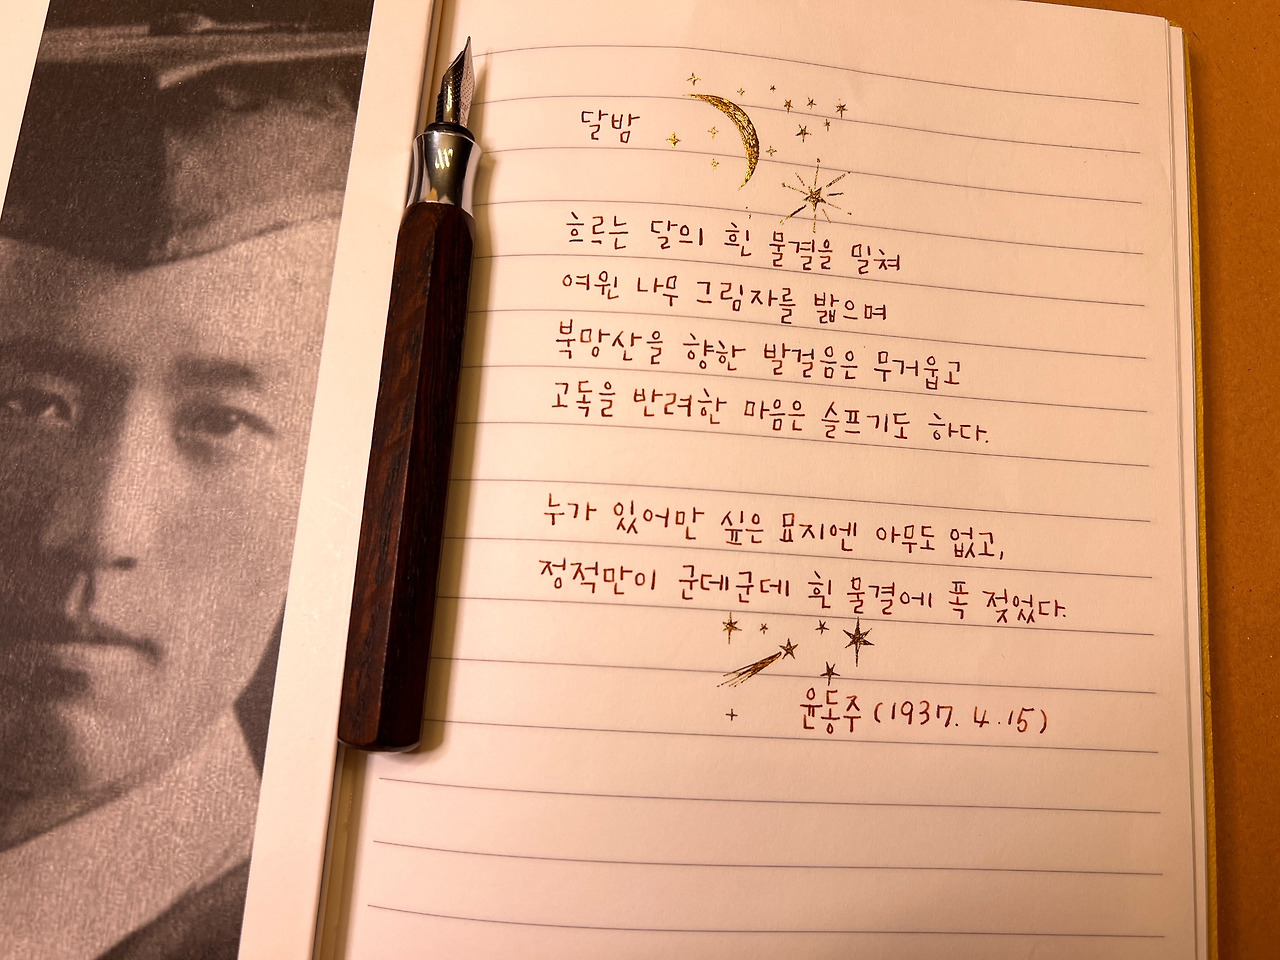 달밤
흐르는 달의 흰 물결을 밀쳐
여윈 나무 그림자를 밟으며
북망산을 향한 발걸음은 무거웁고
고독을 반려한 마음은 슬프기도 하다.
누가 있어만 싶은 묘지엔 아무도 없고,
정적만이 군데군데 흰 물결에 폭 젖었다.
윤동주 (1937. 4. 15)